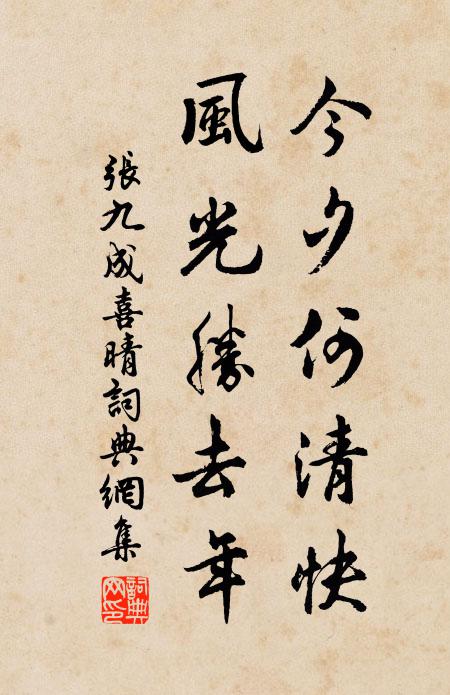 今夕何清快
風光勝去年
張九成喜晴詞典網集
詞典網印